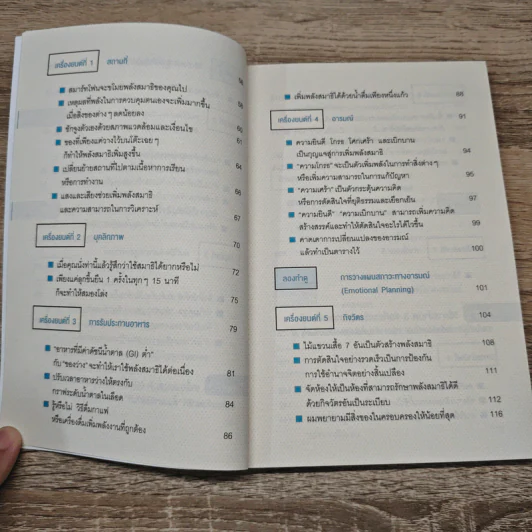 เครื่องยนต์ที่ 1 สถานที่
สมาร์ทโฟนจะขโมยพลังสมาธิของคุณไป
เหตุผลที่พลังในการควบคุมตนเองจะเพิ่มมากขึ้น
เมื่อสิ่งของต่างๆ ลดน้อยลง
ชักจูงตัวเองด้วยสภาพแวดล้อมและเงื่อนไข
ของที่เพียงแค่วางไว้บนโต๊ะเฉยๆ 61
ก็ทำให้พลังสมาธิเพิ่มสูงขึ้น 64
เปลี่ยนย้ายสถานที่ไปตามเนื้อหาการเรียน
หรือการทำงาน 66
แสงและเสียงช่วยเพิ่มพลังสมาธิ
และความสามารถในการวิเคราะห์ 67
เครื่องยนต์ที่ 2 บุคลิกภาพ 70
เมื่อคุณนั่งท่านี้แล้วรู้สึกว่าใช้สมาธิได้ยากหรือไม่ 72
เพียงแค่ลุกขึ้นยืน 1 ครั้งในทุกๆ 15 นาที
ก็จะทำให้สมองโล่ง 75
เครื่องยนต์ที่ 3 การรับประทานอาหาร 79
"อาหารที่มีค่าดัชนีน้ำตาล (GI) ต่ำ"
กับ "ของว่าง" จะทำให้เราใช้พลังสมาธิได้ต่อเนื่อง 81
ปรับเวลาอาหารว่างให้ตรงกับ
กราฟระดับน้ำตาลในเลือด 84
รู้หรือไม่ วิธีดื่มกาแฟ
หรือเครื่องดื่มเพิ่มพลังงานที่ถูกต้อง 86
เพิ่มพลังสมาธิได้ด้วยน้ำดื่มเพียงหนึ่งแก้ว 88
เครื่องยนต์ที่ 4 อารมณ์ 91
ความยินดี โกรธ โศกเศร้า และเบิกบาน
เป็นกุญแจสู่การเพิ่มพลังสมาธิ 94
"ความโกรธ" จะเป็นตัวเพิ่มพลังในการทำสิ่งต่างๆ
หรือเพิ่มความสามารถในการแก้ปัญหา 96
"ความเศร้า" เป็นตัวกระตุ้นความคิด
หรือการตัดสินใจที่ยุติธรรมและเยือกเย็น 97
"ความยินดี" "ความเบิกบาน" สามารถเพิ่มความคิด
สร้างสรรค์และทำให้ตัดสินใจอะไรได้ไวขึ้น 99
คาดเดาการเปลี่ยนแปลงของอารมณ์
แล้วทำเป็นตารางไว้ 100
ลองทำดู การวางแผนสภาวะทางอารมณ์
(Emotional Planning) 101
เครื่องยนต์ที่ 5 กิจวัตร 104
ไม้แขวนเสื้อ 7 อันเป็นตัวสร้างพลังสมาธิ 108
การตัดสินใจอย่างรวดเร็วเป็นการป้องกัน
การใช้อำนาจจิตอย่างสิ้นเปลือง 111
จัดห้องให้เป็นห้องที่สามารถรักษาพลังสมาธิได้ดี
ด้วยกิจวัตรอันเป็นระเบียบ 112
ผมพยายามมีสิ่งของในครอบครองให้น้อยที่สุด 116